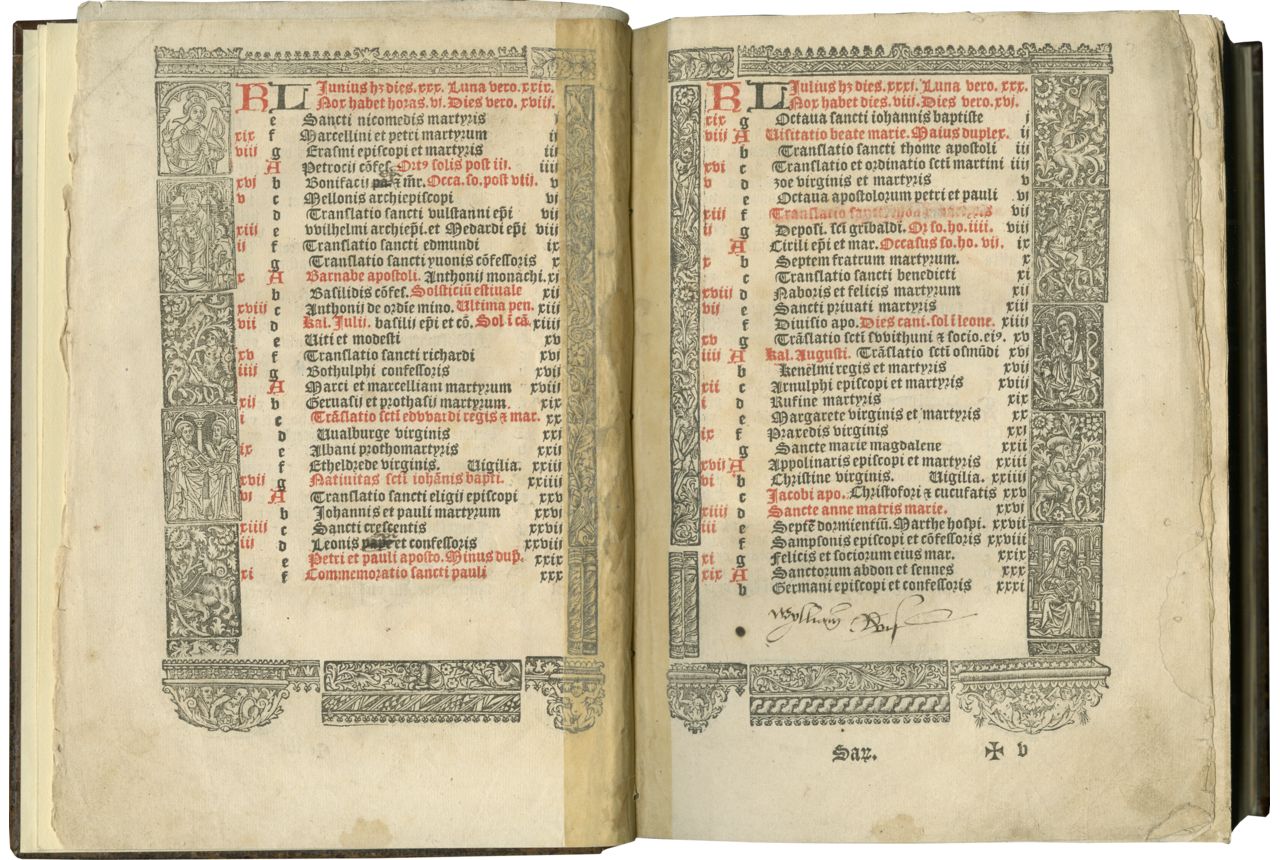 KL Junius hꝫ dies. xxx. Luna vero. xxix.
Nox habet horas. vi. Dies vero. xviij.
e Sancti nicomedis martyris i
xix f Marcellini et petri martyrum ij
viij g Erasmi episcopi et martyris iij
A Petrocij cōfes. Ortꝰ solis post iij. iiij
xvj b Bonifacij ⁊ mr̄. Occa. so. post viij. v
v c Mellonis archiepiscopi vj
d Translatio sancti vulstanni ep̄i vij
xiij e vvilhelmi archiep̄i. et Medardi ep̄i viij
ij f Translatio sancti edmundi ix
g Translatio sancti yuonis cōfessoris x
x A Barnabe apostoli. Anthonij monachi. xj
b Basilidis cōfes. Solsticiū estiuale xij
xviij c Anthonij de ordīe mino. Ultima pen. xiij
vij d Kal. Julij. basilij ep̄i et cō. Sol ī cā. xiiij
e Uiti et modesti xv
xv f Translatio sancti richardi xvj
iiij g Bothulphi confessoris xvij
A Marci et marcelliani martyrum xviij
xij b Geruasij et prothasij martyrum. xix
i c Trāslatio sctī edvvardi regis ⁊ mar. xx
d Uualburge virginis xxj
ix e Albani prothomartyris xxij
f Etheldrede virginis. Uigilia. xxiij
xvij g Natiuitas sctī iohānis bapti. xxiiij
vj A Translatio sancti eligij episcopi xxv
b Johannis et pauli martyrum xxvj
xiiij c Sancti crescentis xxvij
iij d Leonis pape et confessoris xxviij
e Petri et pauli aposto. Minus dup̄. xxix
xi f Commemoratio sancti pauli xxx
KL Julius hꝫ dies. xxxi. Luna vero. xxx.
Nox habet dies. viij. Dies vero. xvj.
xix g Octaua sancti iohannis baptiste j
viij A Uisitatio beate marie. Maius duplex. ij
b Translatio sancti thome apostoli iij
xvi c Translatio et ordinatio sctī martini iiij
v d zoe virginis et martyris v
e Octaua apostolorum petri et pauli vj
xiij f Translatio vij
ij g Deposi. sci grībaldi. Or so. ho. iiij. viij
A Cirili ep̄i et mar. Occasus so. ho. vij. ix
x b Septem fratrum martyrum. x
c Translatio sancti benedicti xj
xviij d Naboris et felicis martyrum xij
vij e Sancti priuati martyris xiij
f Diuisio apo. Dies cani. sol ī leone. xiiij
xv g Trāslatio sctī svvithuni ⁊ socio. eiꝰ. xv
iiij A Kal. Augusti. Trāslatio sctī osmūdi xvj
b Kenelmi regis et martyris xvij
xij c Arnulphi episcopi et martyris xviij
i d Rufine martyris xix
e Margarete virginis et martyris xx
ix f Praxedis virginis xxj
g Sancte marie magdalene xxij
xvij A Appolinaris episcopi et martyris xxiij
vi b Christine virginis. Uigilia. xxiiij
c Jacobi apo. Christofori ⁊ cucufatis xxv
xiiij d Sancte anne matris marie. xxvj
iij e Septē dormientiū. Marthe hospi. xxvij
f Sampsonis episcopi et cōfessoris xxviij
xi g Felicis et sociorum eius mar. xxix
xix A Sanctorum abdon et sennes xxx
b Germani episcopi et confessoris xxxi
Wylliam
Sax. ✠ v